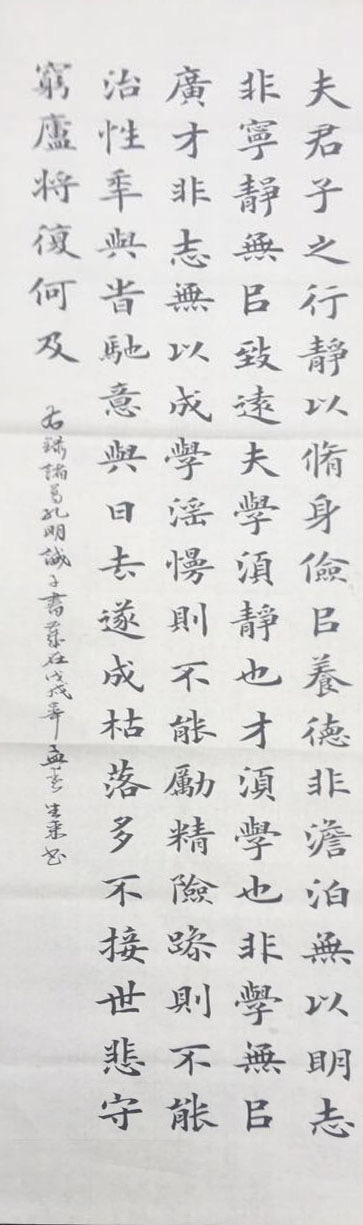 夫君子之行靜以脩身儉㠯養德非澹泊無以明志
非寧靜無㠯致遠夫學須靜也才須學也非學無㠯
廣才非志無以成學滛慢則不能勵精險躁則不能
治性秊與旹馳意與日去遂成枯落多不接世悲守
窮廬将復何及
右錄諸葛孔明誡子書歲在戊戌年孟